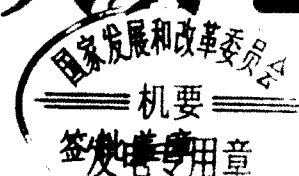 国家发展和改革委员会
机要
发电专用章